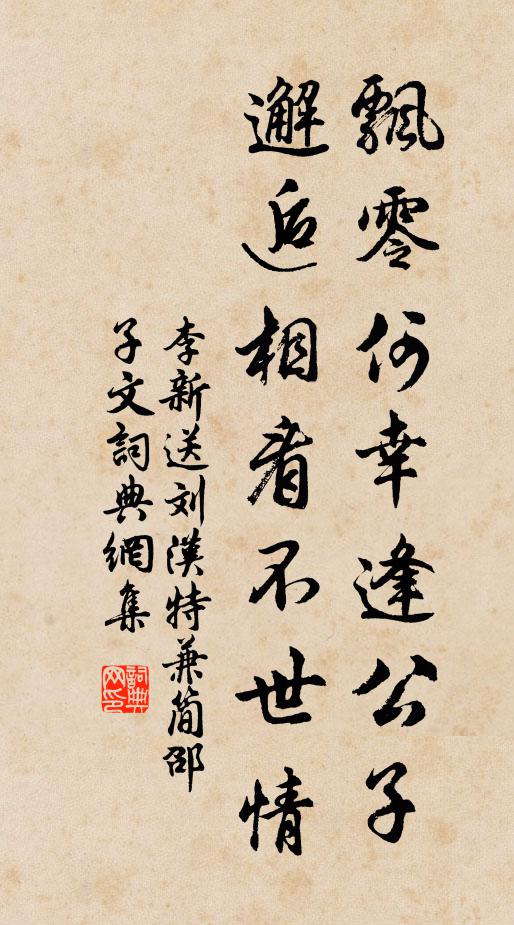 飄零何幸逢公子
邂逅相看不世情
李新送刘漢特兼簡邵
子文詞典網集
詞典
网印